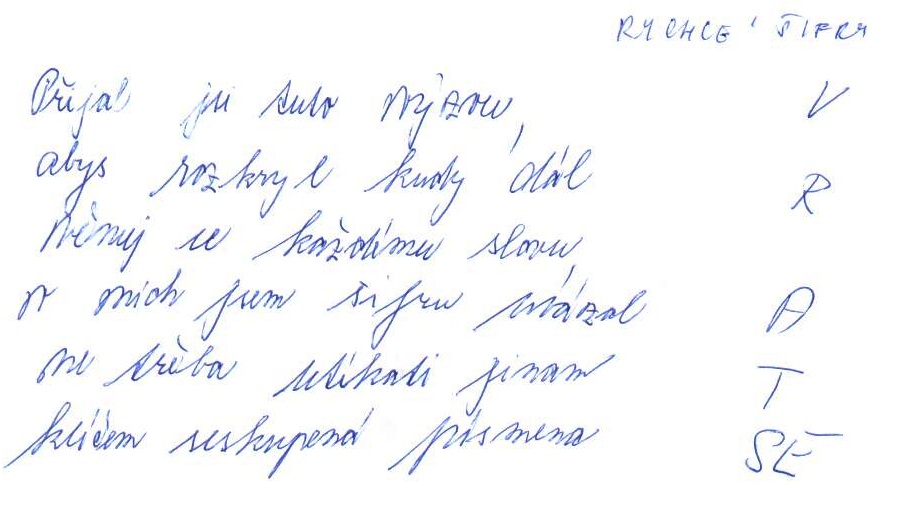 RYCHLÉ ŠIFRY
Přijal jsi tuto výzvu, V
abys rozkryl kudy dál R
Věnuj se každému slovu,
v nich jsem šifru uvázal A
ne třeba utíkati jinam T
klíčem seskupená písmena SE